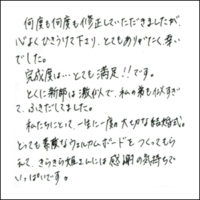 何度も何度も修正していただきましたが、
心よくひきうけて下さり、とてもありがたく、幸い
でした。
完成度は…とても満足!!です。
とくに新郎は激似で、私の弟も似すぎ
て、ふきだしてました。
私たちにとって、一生に一度の大切な結婚式。
とっても素敵なウェルカムボードをつくってもら
えて、きらきら姫さんには感謝の気持ちで
いっぱいです。